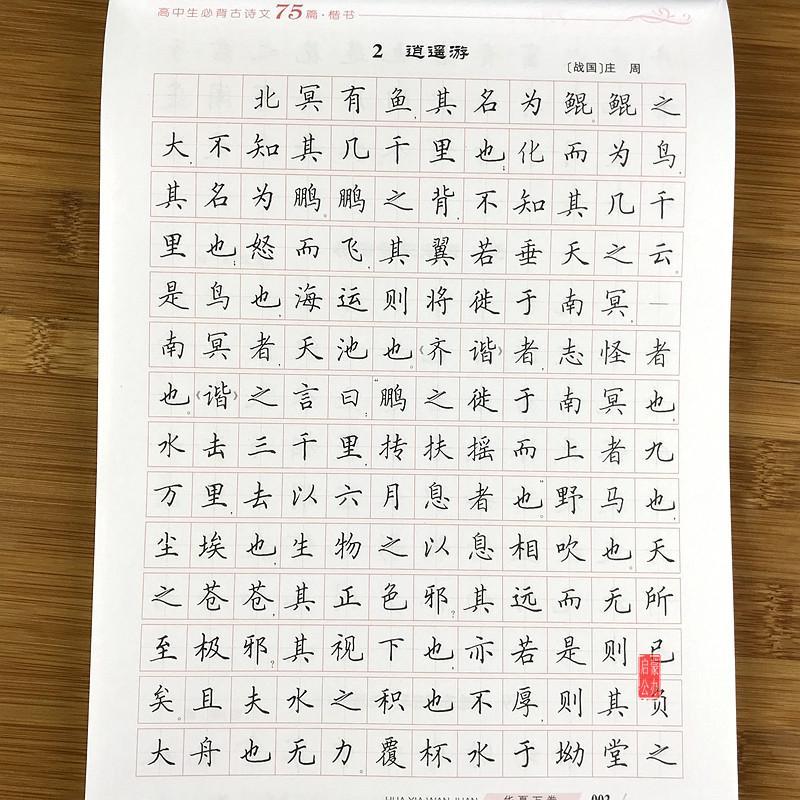 高中生必背古诗文75篇·楷书
2 逍遥游
〔战国〕庄 周
北冥有鱼,其名为鲲。鲲之
大,不知其几千里也;化而为鸟,
其名为鹏。鹏之背,不知其几千
里也;怒而飞,其翼若垂天之云。
是鸟也,海运则将徙于南冥,—
南冥者,天池也。《齐谐》者,志怪者
也。《谐》之言曰:“鹏之徙于南冥也,
水击三千里,抟扶摇而上者九
万里,去以六月息者也。”野马也,
尘埃也,生物之以息相吹也。天
之苍苍,其正色邪?其远而无所
至极邪?其视下也,亦若是则已
矣。且夫水之积也不厚,则其负
大舟也无力。覆杯水于坳堂之
HUA XIA WAN JUAN 华夏万卷